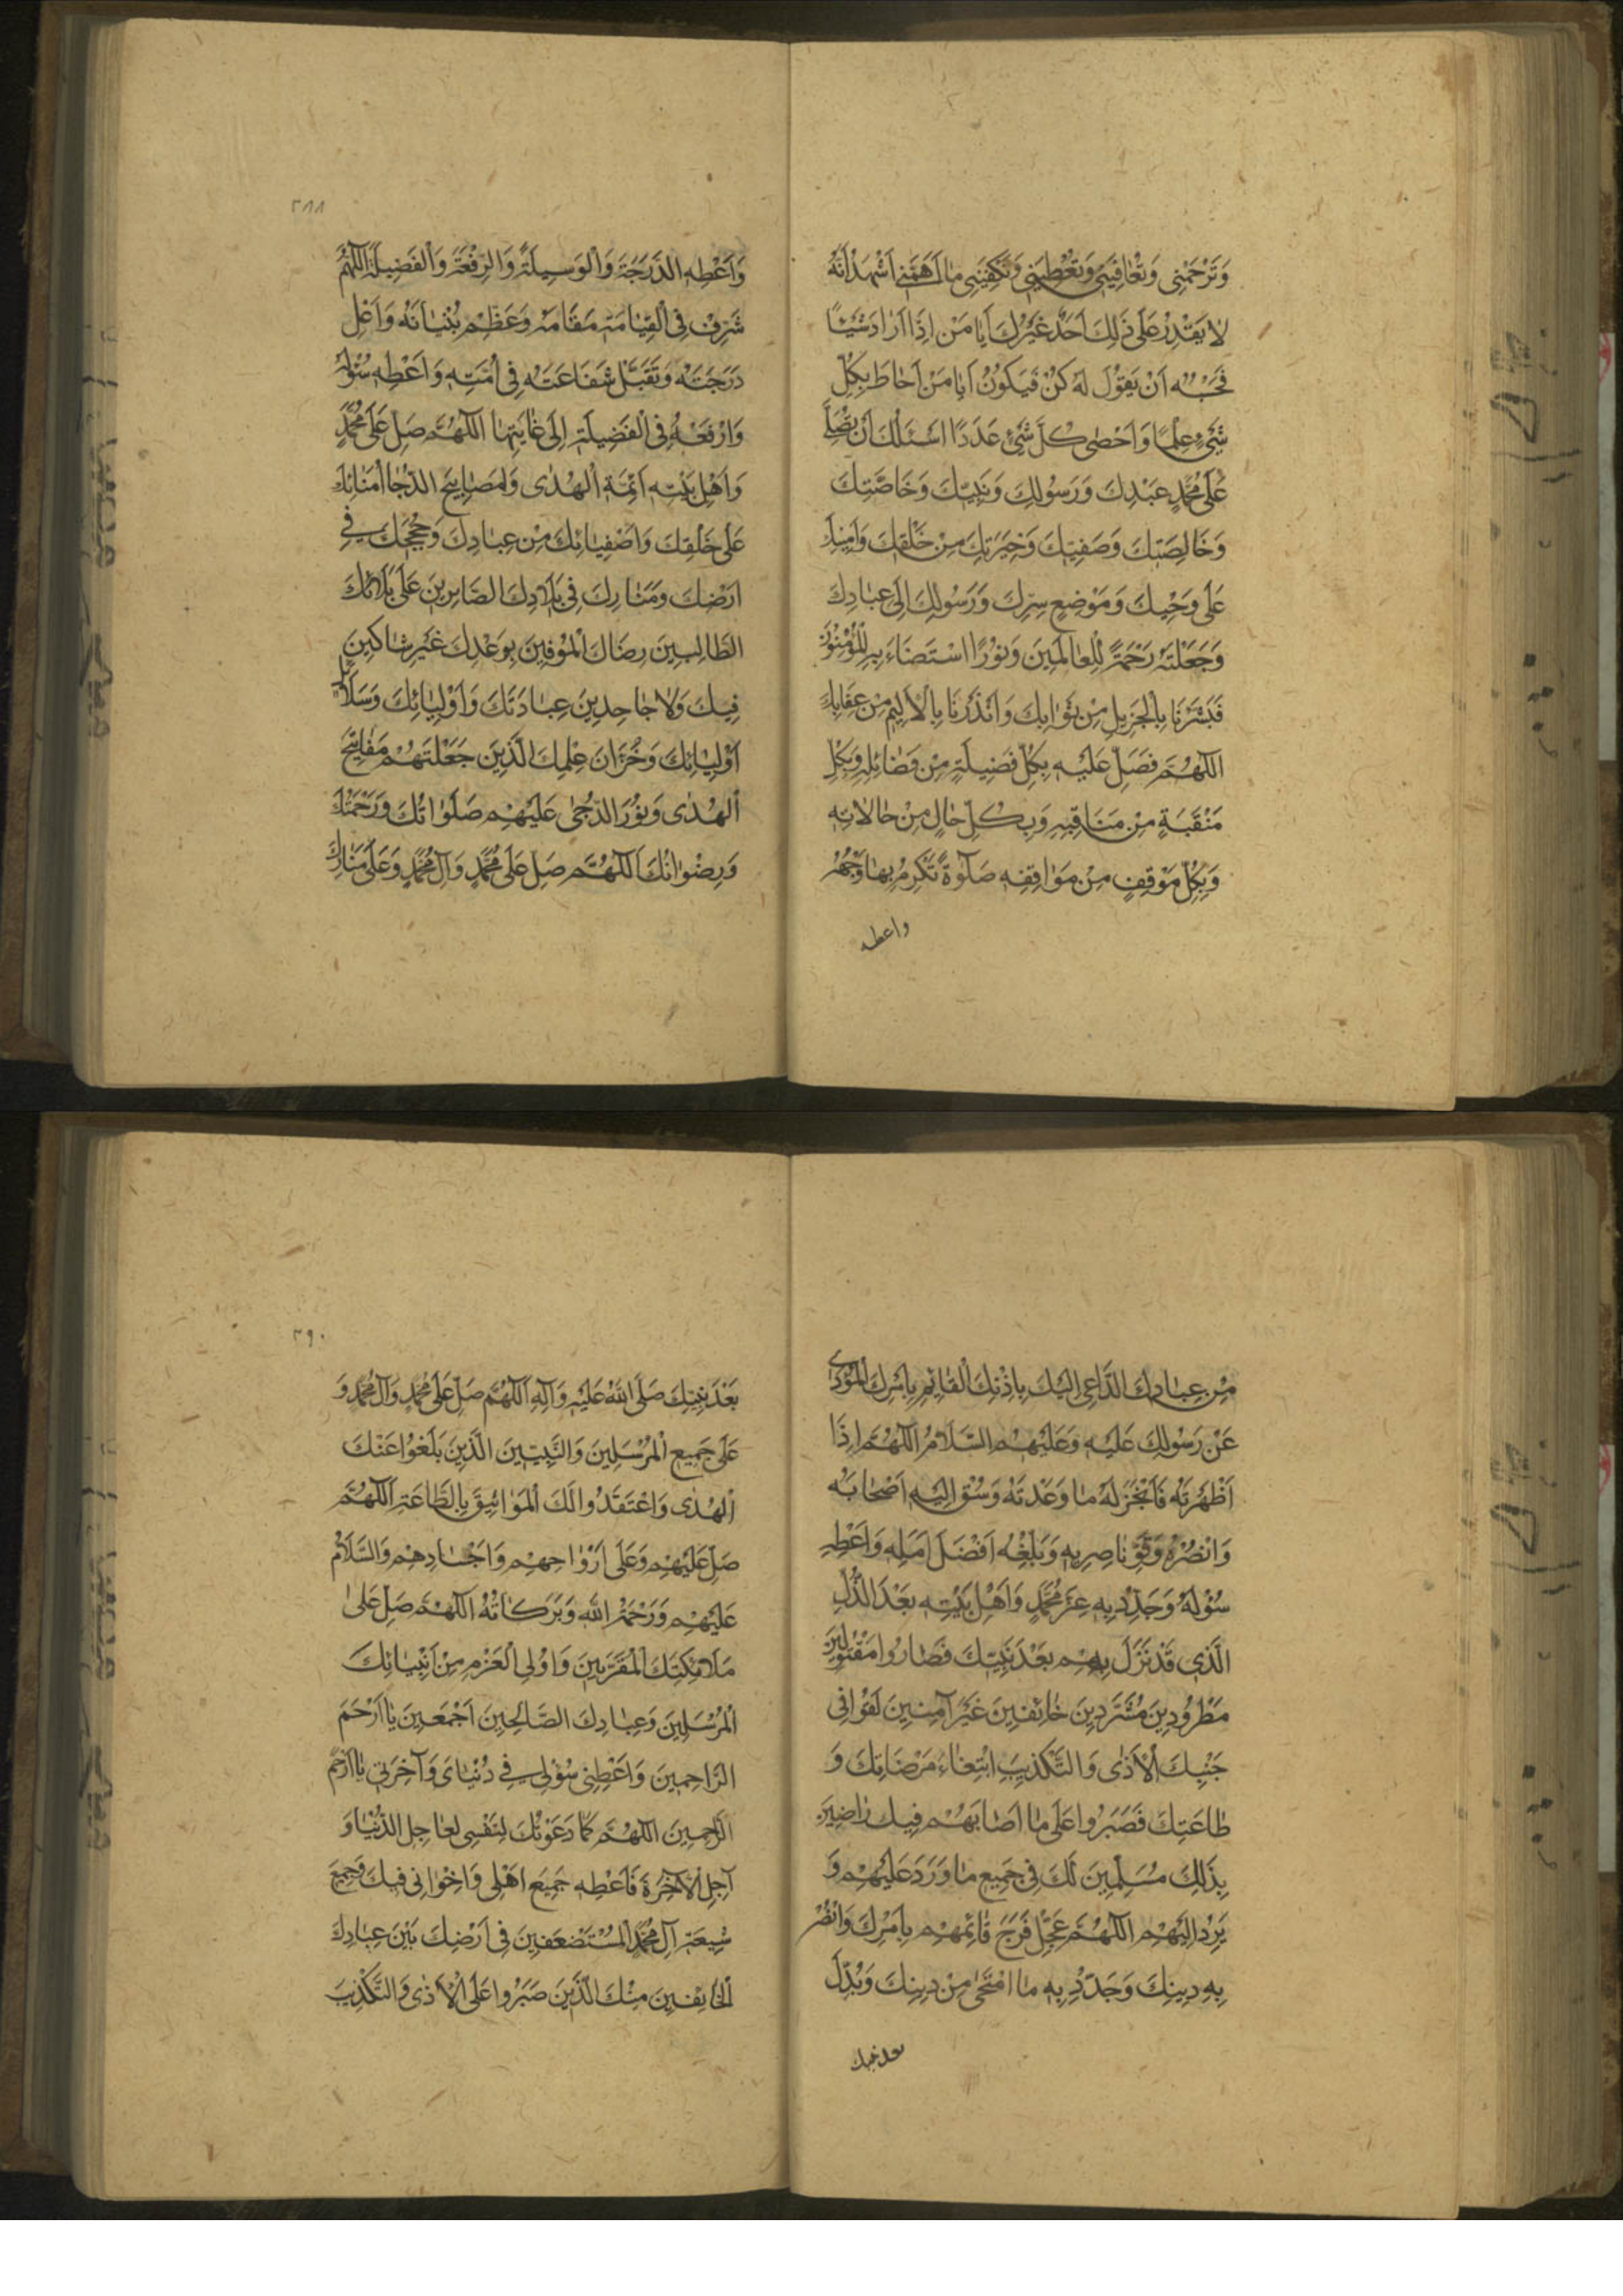 وَتَرْحَمَنِي وَتُعَافِيَنِي وَتُعْطِيَنِي وَتَكْفِيَنِي مَا اَهَمَّنِي اَشْهَدُ اَنَّهُ
لَا يَقْدِرُ عَلَى ذٰلِكَ اَحَدٌ غَيْرُكَ اَيَا مَنْ اِذَا اَرَادَ شَيْئًا
فَحَسْبُهُ اَنْ يَقُولَ لَهُ كُنْ فَيَكُونُ اَيَا مَنْ اَحَاطَ بِكُلِّ
شَيْءٍ عِلْمًا وَاَحْصٰى كُلَّ شَيْءٍ عَدَدًا اَسْئَلُكَ اَنْ تُصَلِّيَ
عَلَى مُحَمَّدٍ عَبْدِكَ وَرَسُولِكَ وَنَبِيِّكَ وَخَاصَّتِكَ
وَخَالِصَتِكَ وَصَفِيِّكَ وَخِيَرَتِكَ مِنْ خَلْقِكَ وَاَمِينِكَ
عَلَى وَحْيِكَ وَمَوْضِعِ سِرِّكَ وَرَسُولِكَ اِلَى عِبَادِكَ
وَجَعَلْتَهُ رَحْمَةً لِلْعَالَمِينَ وَنُورًا اسْتَضَاءَ بِهِ الْمُؤْمِنُونَ
فَبَشَّرَنَا بِالْجَزِيلِ مِنْ ثَوَابِكَ وَاَنْذَرَنَا بِالْاَلِيمِ مِنْ عِقَابِكَ
اللّٰهُمَّ فَصَلِّ عَلَيْهِ بِكُلِّ فَضِيلَةٍ مِنْ فَضَائِلِهِ وَبِكُلِّ
مَنْقَبَةٍ مِنْ مَنَاقِبِهِ وَبِكُلِّ حَالٍ مِنْ حَالَاتِهِ
وَبِكُلِّ مَوْقِفٍ مِنْ مَوَاقِفِهِ صَلٰوةً تُكْرِمُ بِهَا وَجْهَهُ
واعطه
٢٨٨
وَاَعْطِهِ الدَّرَجَةَ وَالْوَسِيلَةَ وَالرِّفْعَةَ وَالْفَضِيلَةَ اللّٰهُمَّ
شَرِّفْ فِي الْقِيَامَةِ مَقَامَهُ وَعَظِّمْ بُنْيَانَهُ وَاَعْلِ
دَرَجَتَهُ وَتَقَبَّلْ شَفَاعَتَهُ فِي اُمَّتِهِ وَاَعْطِهِ سُؤْلَهُ
وَارْفَعْهُ فِي الْفَضِيلَةِ اِلَى غَايَتِهَا اللّٰهُمَّ صَلِّ عَلَى مُحَمَّدٍ
وَاَهْلِ بَيْتِهِ اَئِمَّةِ الْهُدٰى وَمَصَابِيحِ الدُّجَا اُمَنَائِكَ
عَلَى خَلْقِكَ وَاَصْفِيَائِكَ مِنْ عِبَادِكَ وَحُجَجِكَ فِي
اَرْضِكَ وَمَنَارِكَ فِي بِلَادِكَ الصَّابِرِينَ عَلَى بَلَائِكَ
الطَّالِبِينَ رِضَاكَ الْمُوفِينَ بِوَعْدِكَ غَيْرَ شَاكِّينَ
فِيكَ وَلَا جَاحِدِينَ عِبَادَتَكَ وَاَوْلِيَائِكَ وَسَلَائِلِ
اَوْلِيَائِكَ وَخُزَّانِ عِلْمِكَ الَّذِينَ جَعَلْتَهُمْ مَفَاتِيحَ
الْهُدٰى وَنُورَ الدُّجٰى عَلَيْهِمْ صَلَوَاتُكَ وَرَحْمَتُكَ
وَرِضْوَانُكَ اللّٰهُمَّ صَلِّ عَلَى مُحَمَّدٍ وَآلِ مُحَمَّدٍ وَعَلَى مَنَارِكَ
مِنْ عِبَادِكَ الدَّاعِي اِلَيْكَ بِاِذْنِكَ الْقَائِمِ بِاَمْرِكَ الْمُؤَدِّي
عَنْ رَسُولِكَ عَلَيْهِ وَعَلَيْهِمُ السَّلَامُ اللّٰهُمَّ اِذَا
اَظْهَرْتَهُ فَاَنْجِزْ لَهُ مَا وَعَدْتَهُ وَسُقْ اِلَيْهِ اَصْحَابَهُ
وَانْصُرْهُ وَقَوِّ نَاصِرِيهِ وَبَلِّغْهُ اَفْضَلَ اَمَلِهِ وَاَعْطِهِ
سُؤْلَهُ وَجَدِّدْ بِهِ عِزَّ مُحَمَّدٍ وَاَهْلِ بَيْتِهِ بَعْدَ الذُّلِّ
الَّذِي قَدْ نَزَلَ بِهِمْ بَعْدَ نَبِيِّكَ فَصَارُوا مَقْتُولِينَ
مَطْرُودِينَ مُشَرَّدِينَ خَائِفِينَ غَيْرَ آمِنِينَ لَقُوا فِي
جَنْبِكَ الْاَذٰى وَالتَّكْذِيبَ ابْتِغَاءَ مَرْضَاتِكَ وَ
طَاعَتِكَ فَصَبَرُوا عَلَى مَا اَصَابَهُمْ فِيكَ رَاضِينَ
بِذٰلِكَ مُسَلِّمِينَ لَكَ فِي جَمِيعِ مَا وَرَدَ عَلَيْهِمْ وَ
يَرِدُ اِلَيْهِمْ اللّٰهُمَّ عَجِّلْ فَرَجَ قَائِمِهِمْ بِاَمْرِكَ وَانْصُرْ
بِهِ دِينَكَ وَجَدِّدْ بِهِ مَا امْتَحٰى مِنْ دِينِكَ وَبُدِّلَ
بعد نبيك
٢٩٠
بَعْدَ نَبِيِّكَ صَلَّى اللّٰهُ عَلَيْهِ وَآلِهِ اللّٰهُمَّ صَلِّ عَلَى مُحَمَّدٍ وَآلِ مُحَمَّدٍ وَ
عَلَى جَمِيعِ الْمُرْسَلِينَ وَالنَّبِيِّينَ الَّذِينَ بَلَّغُوا عَنْكَ
الْهُدٰى وَاعْتَقَدُوا لَكَ الْمَوَاثِيقَ بِالطَّاعَةِ اللّٰهُمَّ
صَلِّ عَلَيْهِمْ وَعَلَى اَرْوَاحِهِمْ وَاَجْسَادِهِمْ وَالسَّلَامُ
عَلَيْهِمْ وَرَحْمَةُ اللّٰهِ وَبَرَكَاتُهُ اللّٰهُمَّ صَلِّ عَلَى
مَلَائِكَتِكَ الْمُقَرَّبِينَ وَاُولِي الْعَزْمِ مِنْ اَنْبِيَائِكَ
الْمُرْسَلِينَ وَعِبَادِكَ الصَّالِحِينَ اَجْمَعِينَ يَا اَرْحَمَ
الرَّاحِمِينَ وَاَعْطِنِي سُؤْلِي فِي دُنْيَايَ وَآخِرَتِي يَا اَرْحَمَ
الرَّاحِمِينَ اللّٰهُمَّ كَمَا دَعَوْتُكَ لِنَفْسِي لِعَاجِلِ الدُّنْيَا وَ
آجِلِ الْآخِرَةِ فَاَعْطِهِ جَمِيعَ اَهْلِي وَاِخْوَانِي فِيكَ وَجَمِيعَ
شِيعَةِ آلِ مُحَمَّدٍ الْمُسْتَضْعَفِينَ فِي اَرْضِكَ بَيْنَ عِبَادِكَ
الْخَائِفِينَ مِنْكَ الَّذِينَ صَبَرُوا عَلَى الْاَذٰى وَالتَّكْذِيبِ